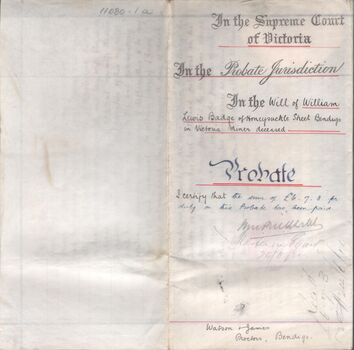 11080-1a
In the Supreme Court
of Victoria
In the Probate Jurisdiction
In the Will of William
Lewis Badge of Honeysuckle Street Bendigo
in Victoria Miner deceased
Probate
I certify that the sum of £6. 7. 3 for
duty on this Probate has been paid
Watson & James
Proctors, Bendigo.